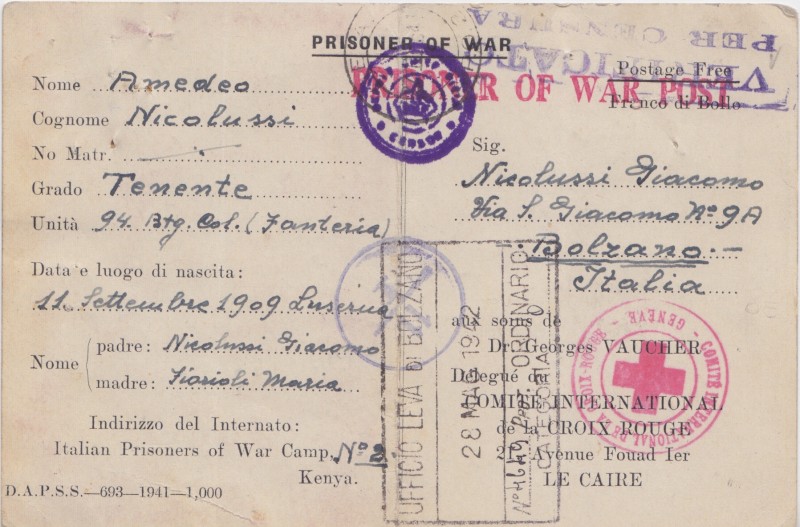 PRISONER OF WAR
VERIFICATO
PER CENSURA
PRISONER OF WAR POST
Postage Free
Franco di Bollo
Nome Amedeo
Cognome Nicolussi
No Matr.
Grado Tenente
Unità 94. Btg. Col. (Fanteria)
Data e luogo di nascita:
11 Settembre 1909 Luserna
Nome
padre: Nicolussi Giacomo
madre: Maria
Indirizzo del Internato:
Italian Prisoners of War Camp, No 2
Kenya.
D.A.P.S.S.—693-1941—1,000
Sig.
Nicolussi Giacomo
Via S. Giacomo No 9A
Bolzano.—
Italia
aux soins de
Dr Georges VAUCHER
Délégué de
COMITE INTERNATIONAL
de la CROIX ROUGE
21, Avenue Fouad Ier
LE CAIRE
COMITÉ INTERNATIONAL DE LA CROIX-ROUGE - GENÈVE -
CENSOR
UFFICIO LEVA di BOLZANO
28 MAG 1942
ORDINARIO